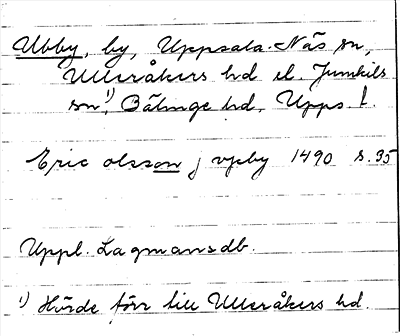 Ubby, by, Uppsala-Näs sn,
Ulleråkers hd el. Jumkils
sn¹⁾, Bälinge hd, Upps. l.
Eric olsson j vpby 1490 s. 35
Uppl. Lagmansdb.
¹⁾ Hörde förr till Ulleråkers hd.